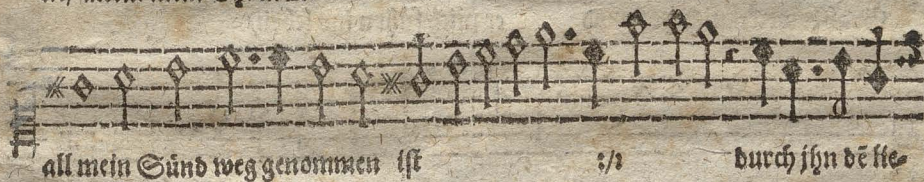 all mein Sünd weg genommen ist :/: durch jhn dẽ lie-